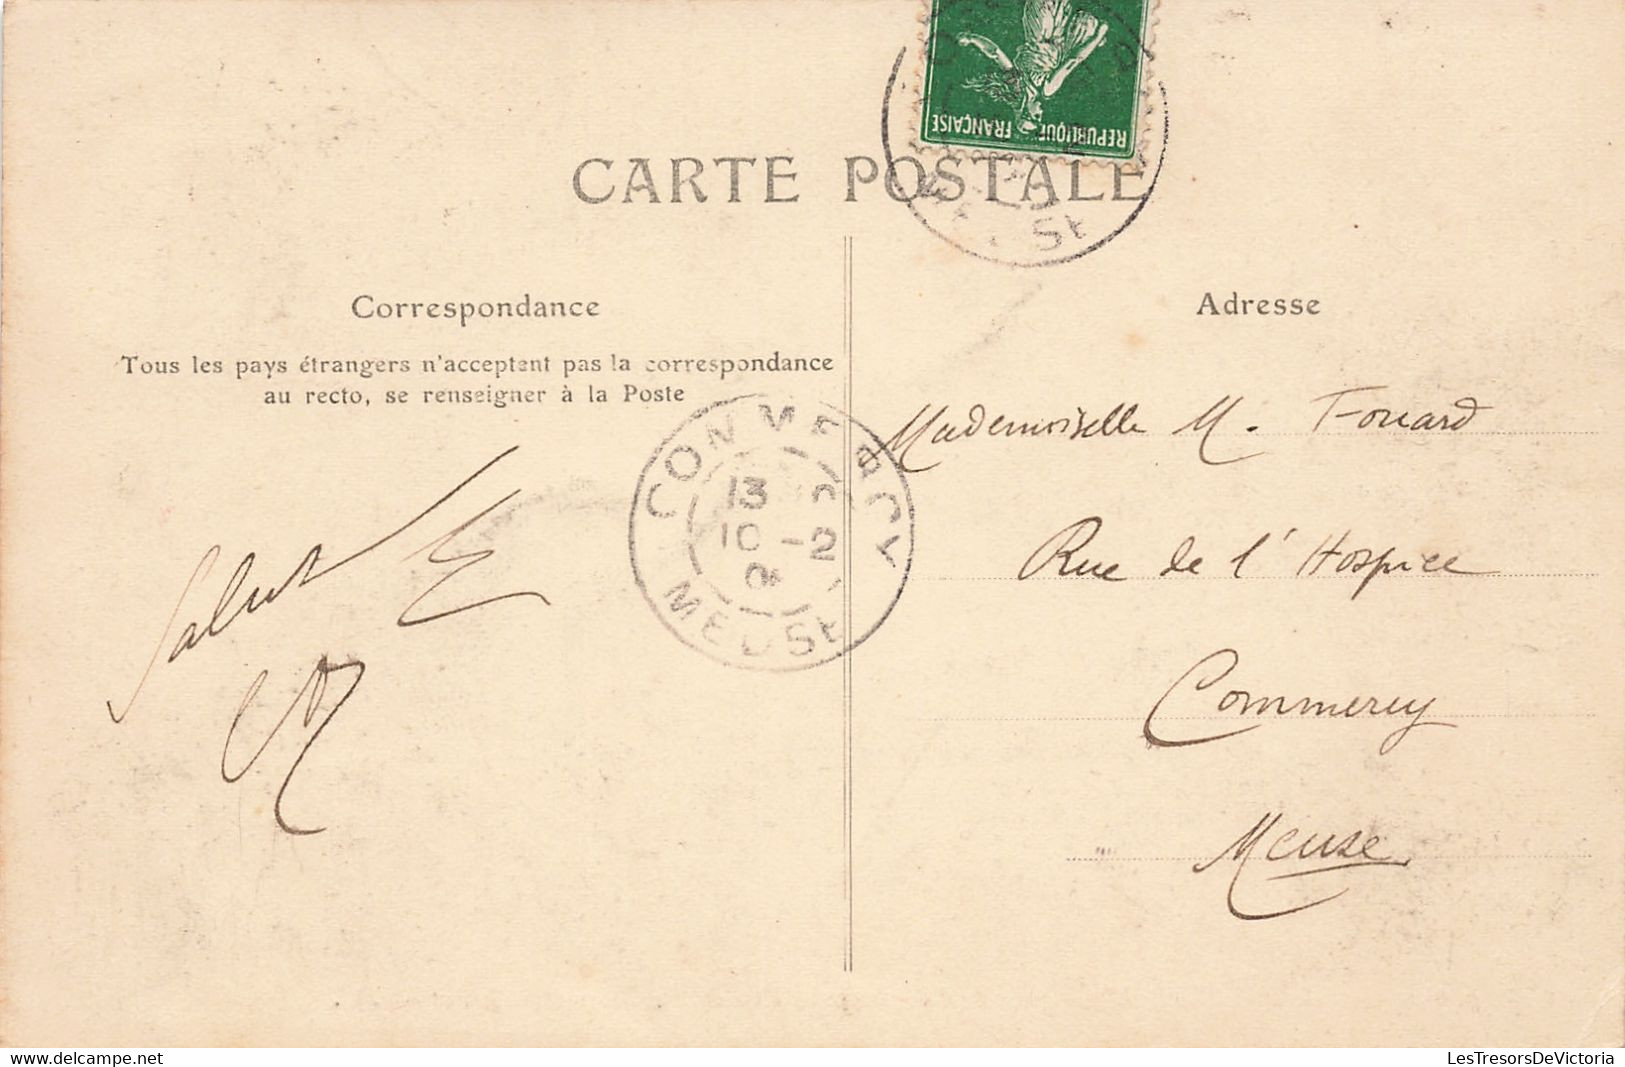 REPUBLIQUE FRANÇAISE
CARTE POSTALE
Correspondance
Tous les pays étrangers n'acceptent pas la correspondance
au recto, se renseigner à la Poste
Salut
COMMERCY
13
10 -2
MEUSE
Adresse
Mademoiselle M. Fouard
Rue de l'Hospice
Commercy
Meuse
delcampe.net
LesTresorsDeVictoria